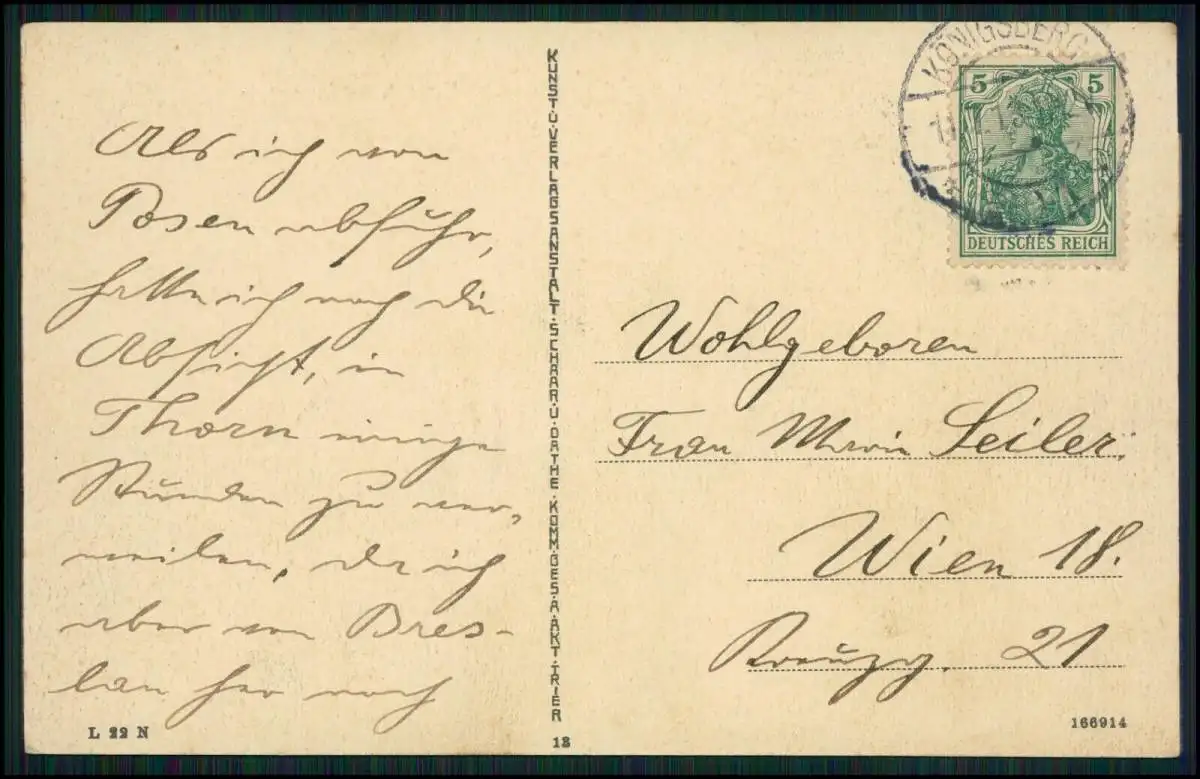 Als ich von
Posen abfuhr,
hatte ich noch die
Absicht, in
Thorn einige
Stunden zu ver-
weilen, da ich
aber von Bres-
lau her noch
L 22 N
KUNST U. VERLAGSANSTALT · SCHAAR · U · DATHE · KOMM · GES · A · AKT · TRIER
13
KÖNIGSBERG
5 5
DEUTSCHES REICH
Wohlgeboren
Frau Marie Seiler.
Wien 18.
Kreuzg. 21
166914